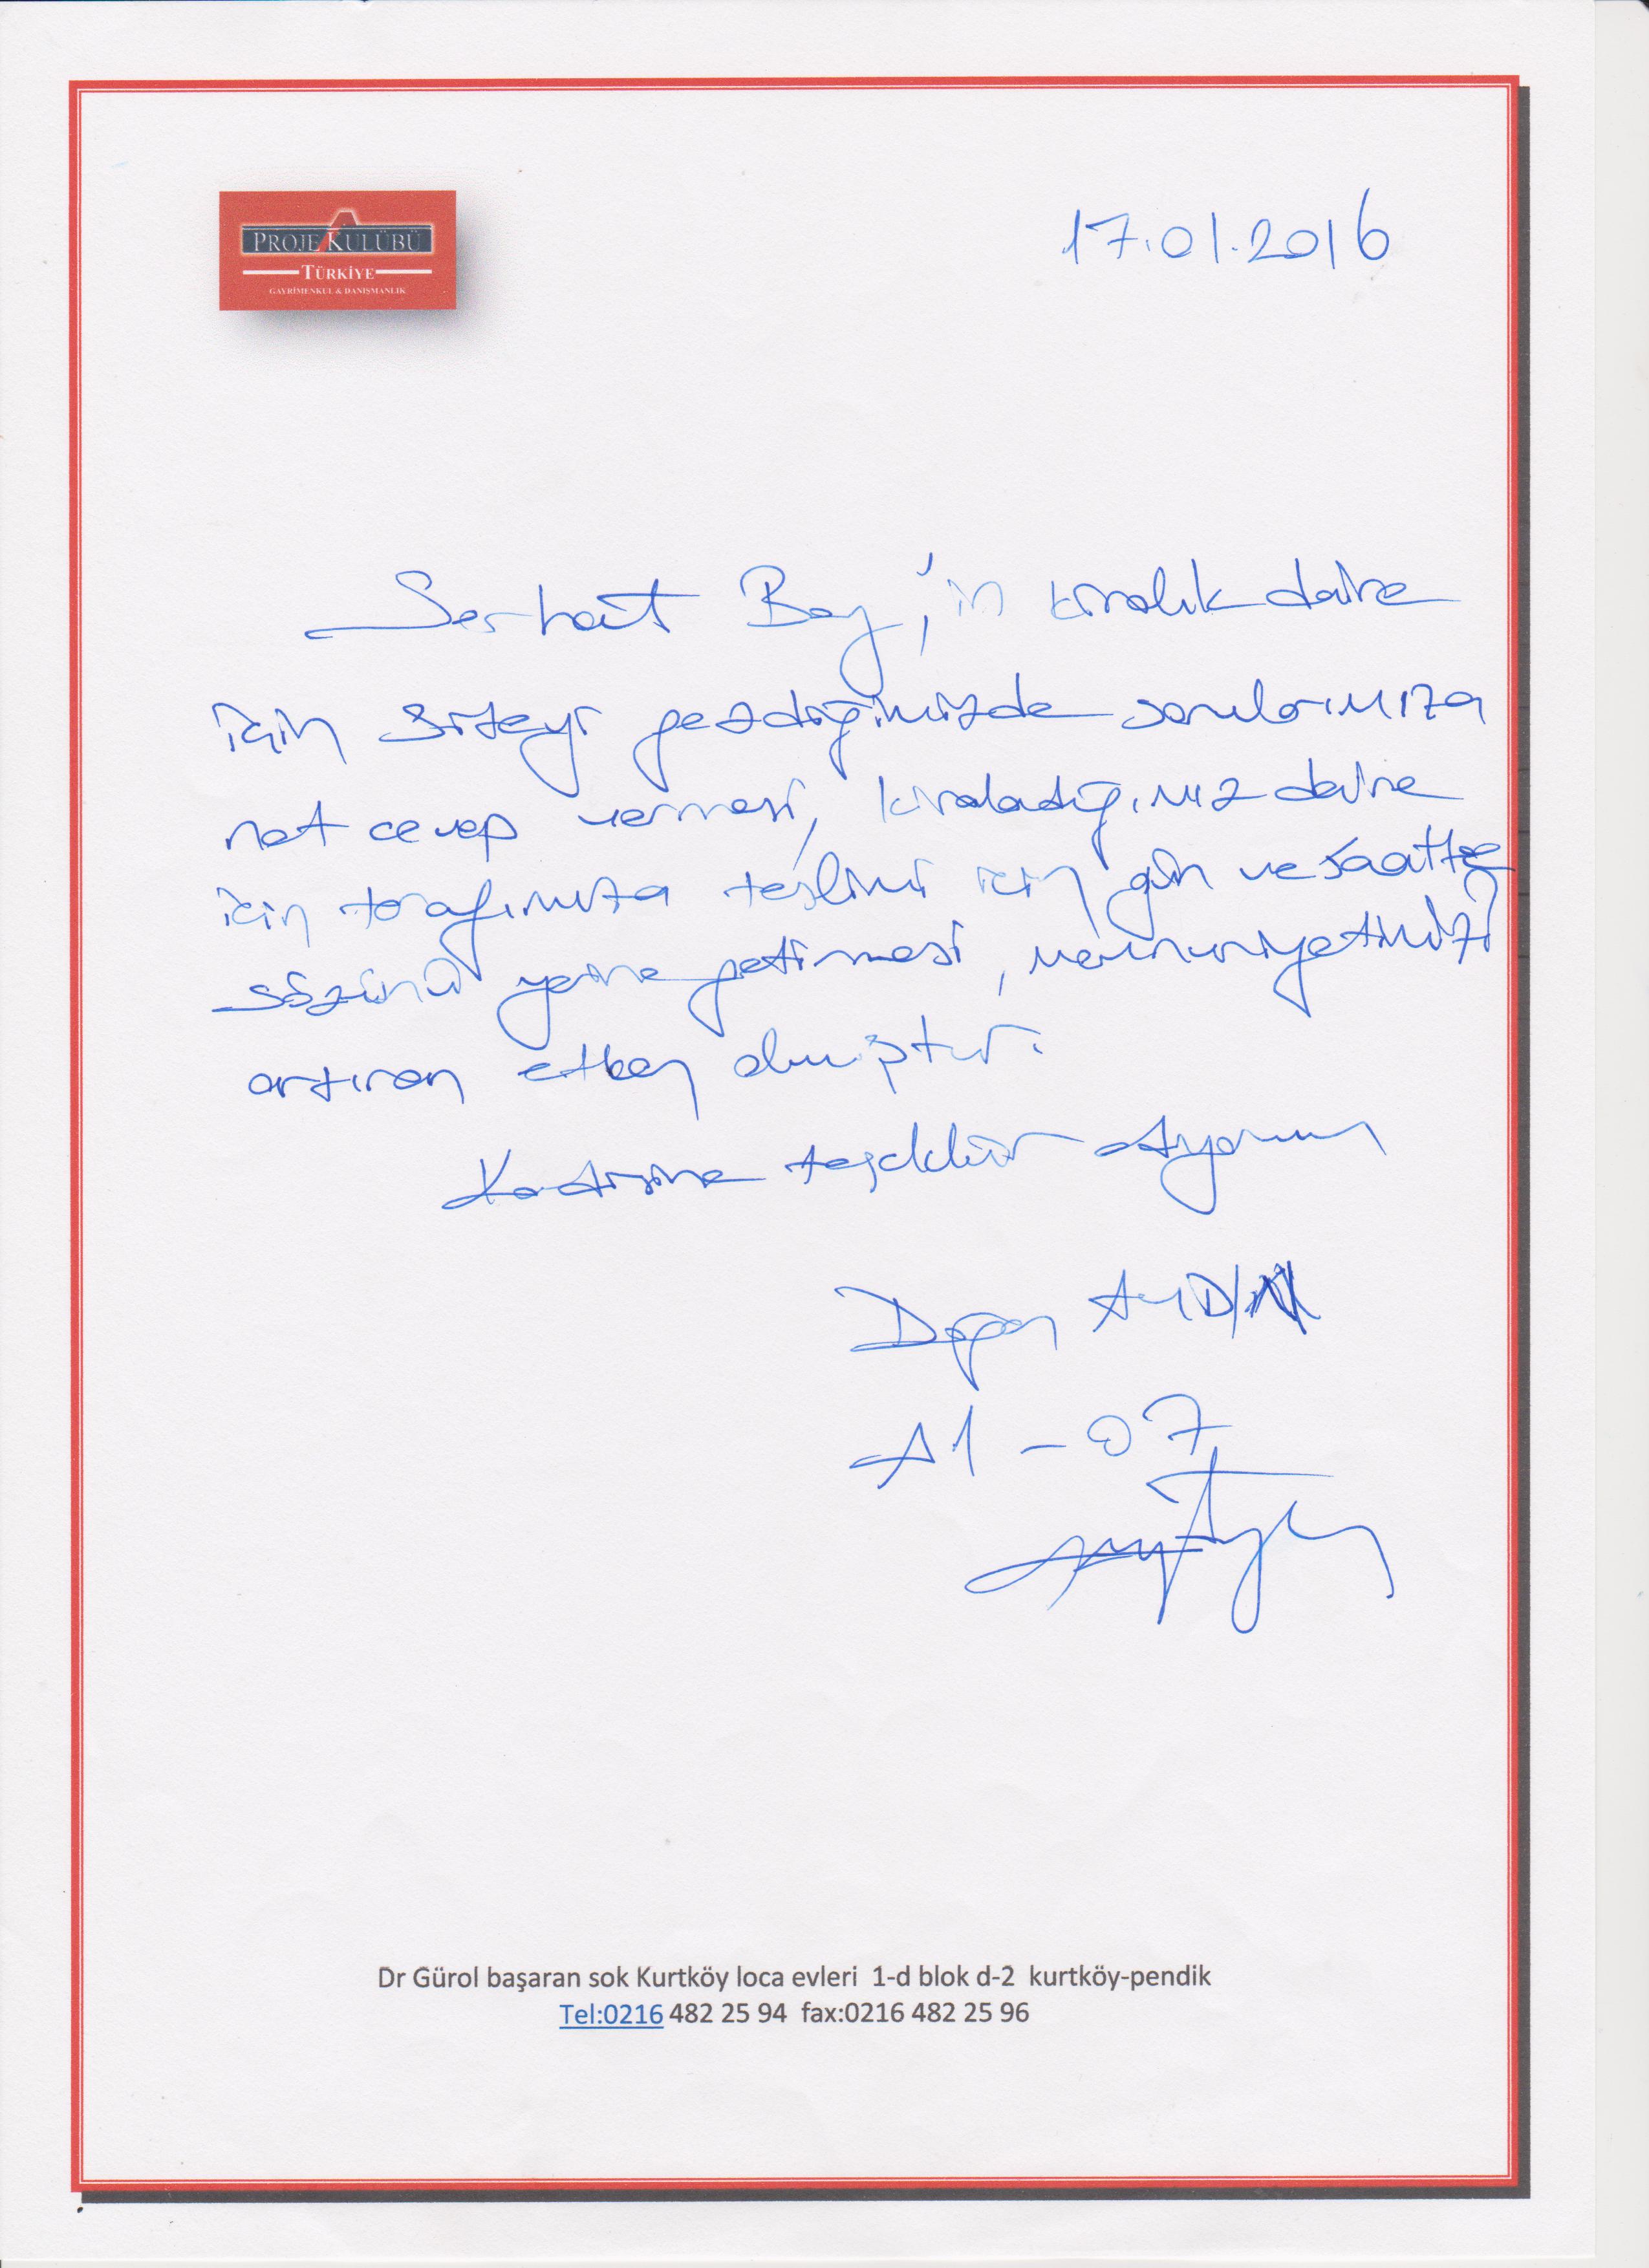 PROJE KULÜBÜ
TÜRKİYE
GAYRİMENKUL & DANIŞMANLIK
17.01.2016
Serhat Bey'in kiralık daire
için siteyi gezdiğimizde sorularımıza
net cevap vermesi, kiraladığımız daire
için tarafımıza teslimi için gün ve saatte
sözünü yerine getirmesi, memnuniyetimizi
artıran etken olmuştur.
Kendisine teşekkür ediyorum
Doğan AYDIN
A1-07
Dr Gürol başaran sok Kurtköy loca evleri 1-d blok d-2 kurtköy-pendik
Tel:0216 482 25 94 fax:0216 482 25 96